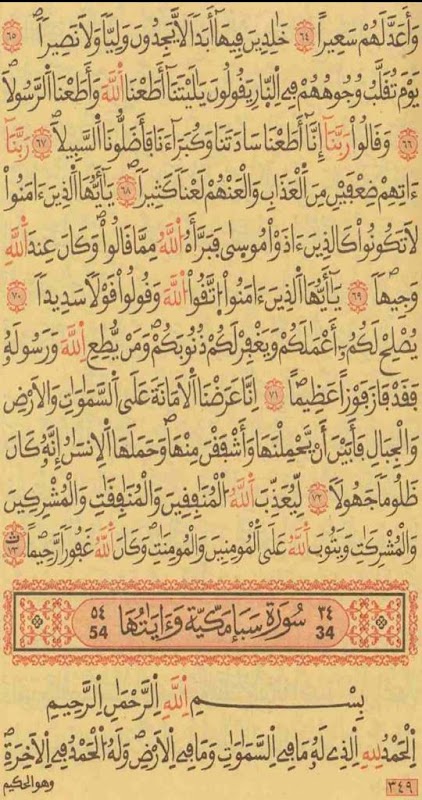 وَأَعَدَّ لَهُمْ سَعِيراً ٦٤ خَٰلِدِينَ فِيهَا أَبَداً لَّا يَجِدُونَ وَلِيّاً وَلَا نَصِيراً ٦٥
يَوْمَ تُقَلَّبُ وُجُوهُهُمْ فِي اِ۬لنّ۪ارِ يَقُولُونَ يَٰلَيْتَنَا أَطَعْنَا اَ۬للَّهَ وَأَطَعْنَا اَ۬لرَّسُولَا
٦٦ وَقَالُواْ رَبَّنَا إِنَّا أَطَعْنَا سَادَتَنَا وَكُبَرَآءَنَا فَأَضَلُّونَا اَ۬لسَّبِيلَا ٦٧ رَبَّنَا
ءَاتِهِمْ ضِعْفَيْنِ مِنَ اَ۬لْعَذَابِ وَالْعَنْهُمْ لَعْناً كَثِيراً ٦٨ يَٰٓأَيُّهَا اَ۬لذِينَ ءَامَنُواْ
لَا تَكُونُواْ كَالذِينَ ءَاذَوْاْ مُوس۪ىٰ فَبَرَّأَهُ اُ۬للَّهُ مِمَّا قَالُواْ وَكَانَ عِندَ اَ۬للَّهِ
وَجِيهاً ٦٩ يَٰٓأَيُّهَا اَ۬لذِينَ ءَامَنُواْ اُ۪تَّقُواْ اُ۬للَّهَ وَقُولُواْ قَوْلاً سَدِيداً ٧٠
يُصْلِحْ لَكُمُۥٓ أَعْمَٰلَكُمْ وَيَغْفِرْ لَكُمْ ذُنُوبَكُمْ وَمَنْ يُّطِعِ اِ۬للَّهَ وَرَسُولَهُۥ
فَقَدْ فَازَ فَوْزاً عَظِيماً ٧١ اِنَّا عَرَضْنَا اَ۬لَامَانَةَ عَلَى اَ۬لسَّمَٰوَٰتِ وَالَارْضِ
وَالْجِبَالِ فَأَبَيْنَ أَنْ يَّحْمِلْنَهَا وَأَشْفَقْنَ مِنْهَا وَحَمَلَهَا اَ۬لِانسَٰنُ إِنَّهُۥ كَانَ
ظَلُوماً جَهُولاً ٧٢ لِّيُعَذِّبَ اَ۬للَّهُ اُ۬لْمُنَٰفِقِينَ وَالْمُنَٰفِقَٰتِ وَالْمُشْرِكِينَ
وَالْمُشْرِكَٰتِ وَيَتُوبَ اَ۬للَّهُ عَلَى اَ۬لْمُومِنِينَ وَالْمُومِنَٰتِ وَكَانَ اَ۬للَّهُ غَفُوراً رَّحِيماً ٧٣
٣٤ 34 سُورَة سَبَإ مَكِّيَّة وَءَايَتُهَا ٥٤ 54
بِسْمِ اِ۬للَّهِ اِ۬لرَّحْمَٰنِ اِ۬لرَّحِيمِ
اِ۬لْحَمْدُ لِلهِ اِ۬لذِي لَهُۥ مَا فِي اِ۬لسَّمَٰوَٰتِ وَمَا فِي اِ۬لَارْضِ وَلَهُ اُ۬لْحَمْدُ فِي اِ۬لَاخِرَةِ
٣٤٩ وهو الحكيم